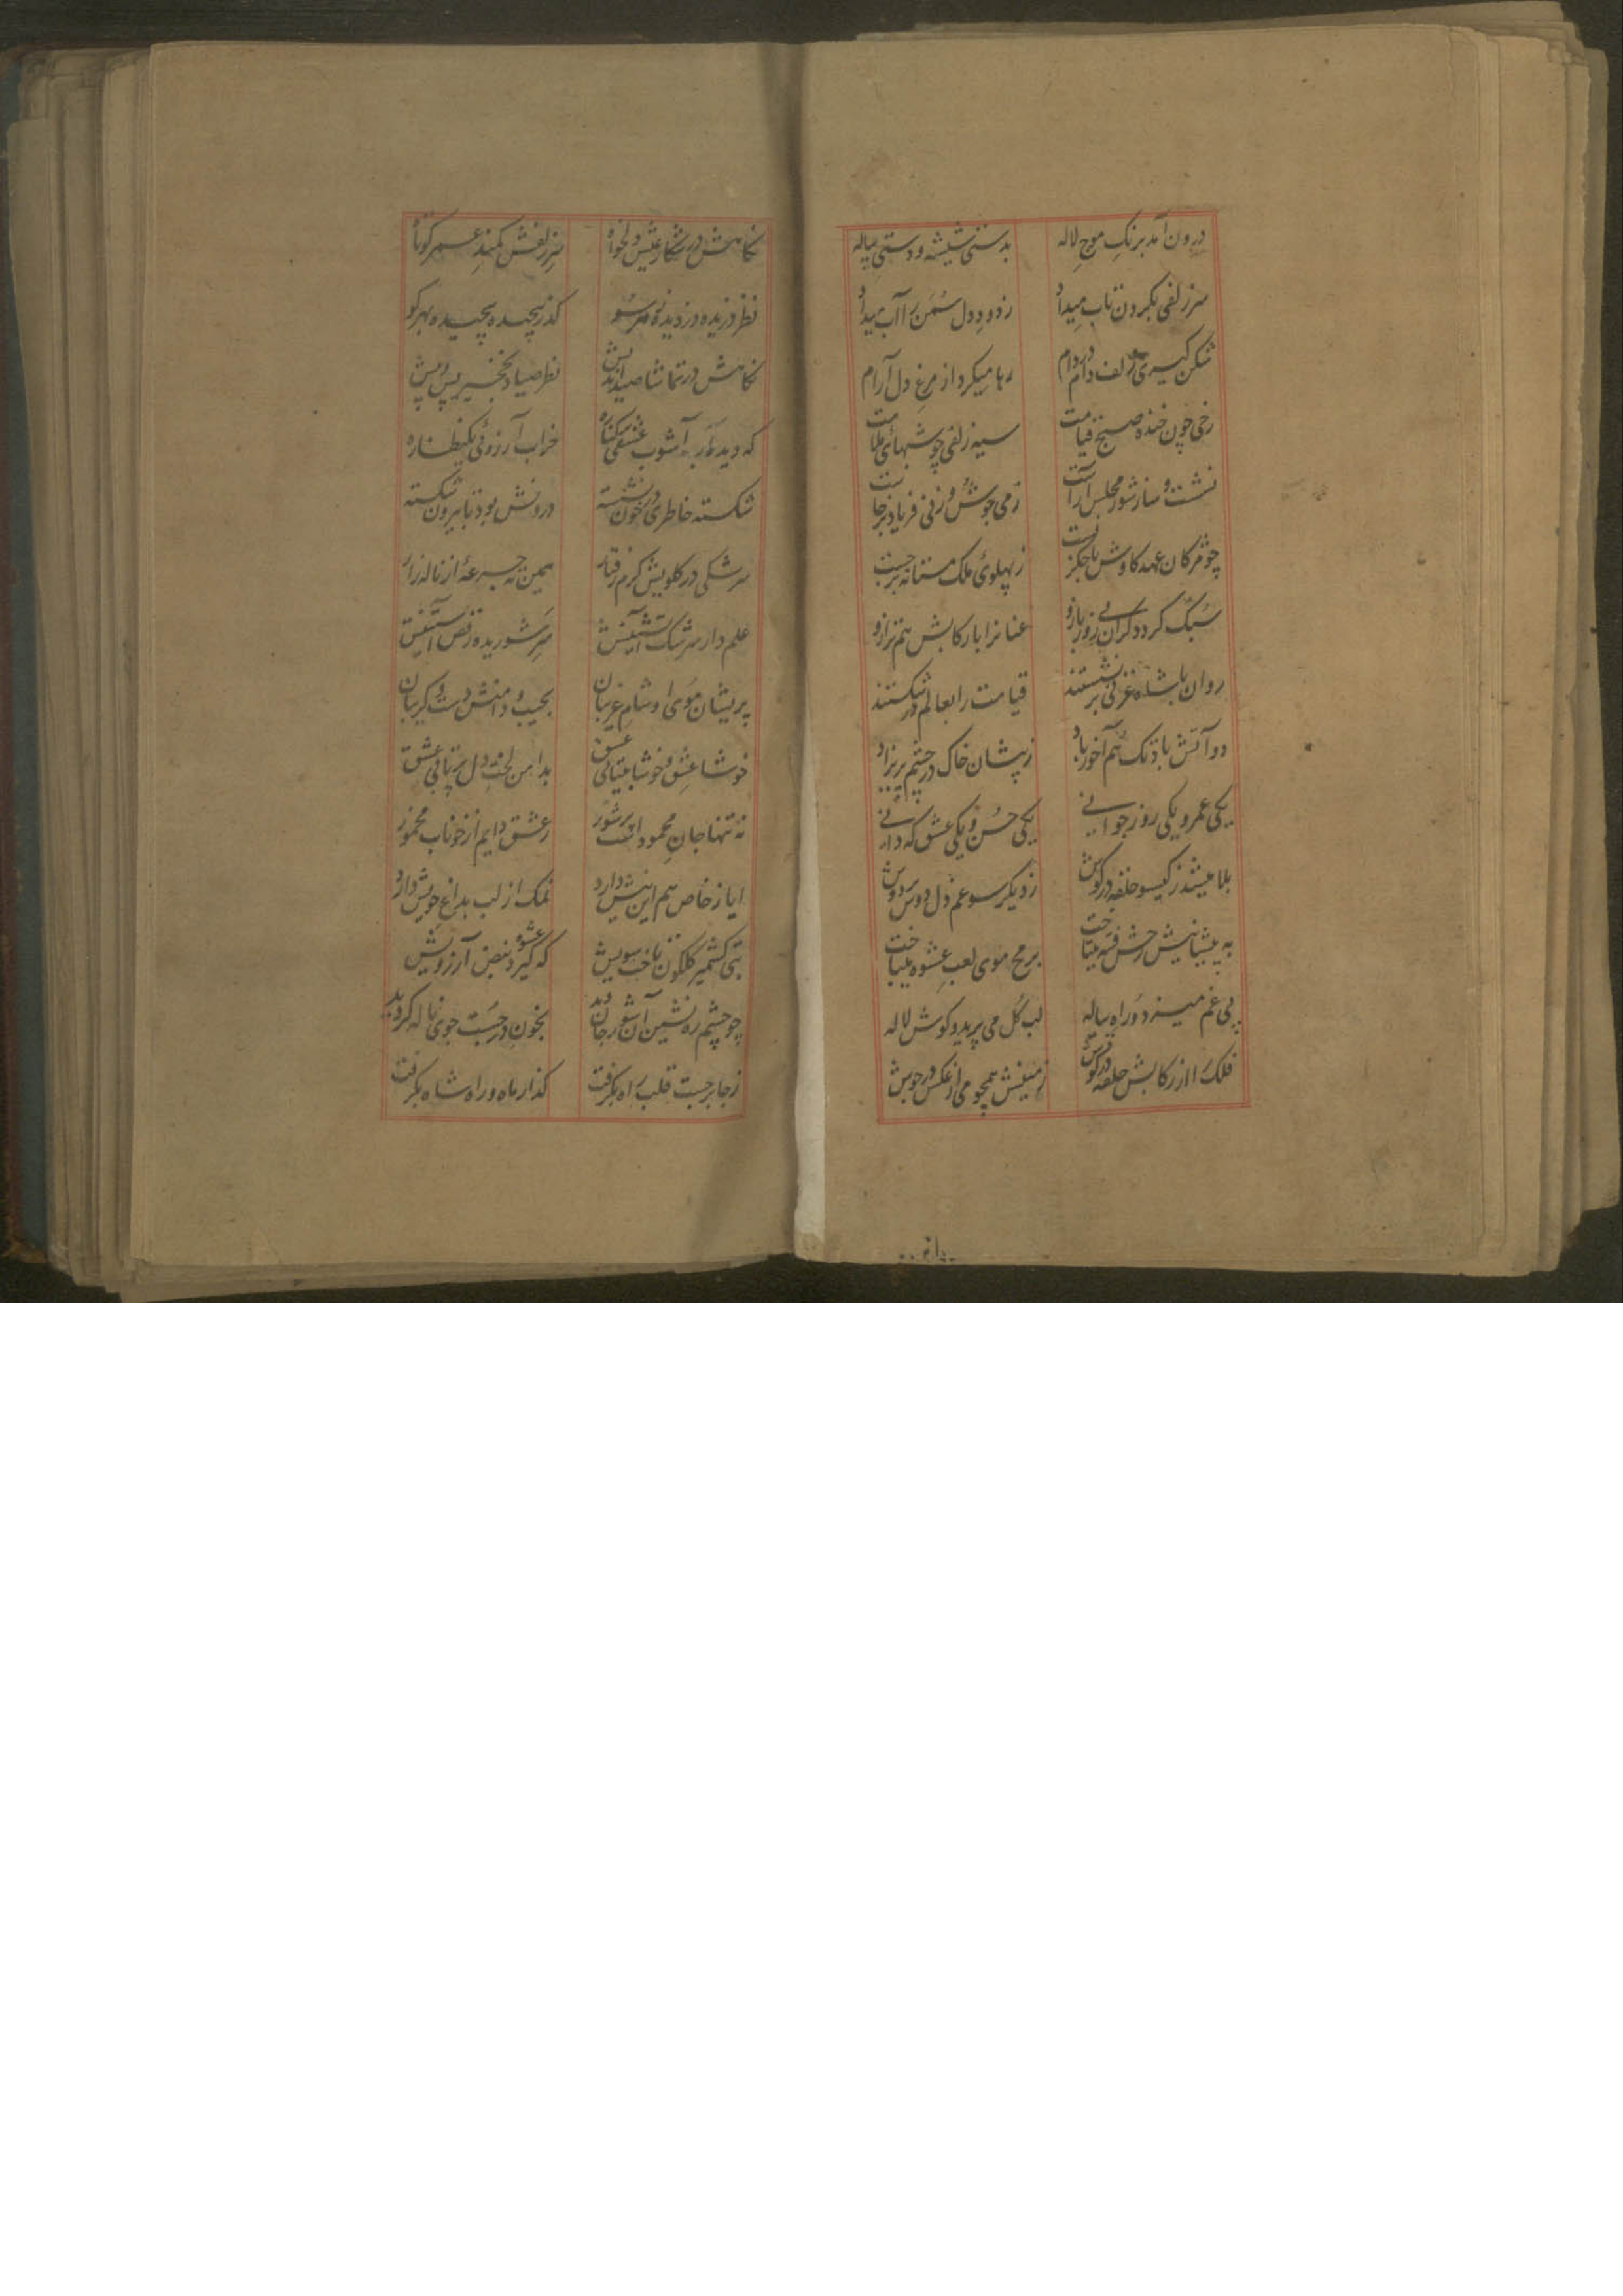 درون آمد برنگِ موجِ لاله بدستی شیشه و دستی پیاله
سر زلفی بگردون تاب میداد ز دود دل سمن را آب میداد
شکن گیری ز لف دام در دام رها میکرد از مرغِ دل آرام
رخی چون خنده صبحِ قیامت سیه زلفی چو شبهای ملامت
نشست و ساز شور مجلس آراست ز می جوش و ز نی فریاد برخاست
چو مژکان عهد کاوش با جکر بست ز پهلوئی ملک مستانه برجست
سبک کردد کران بی زور بازو عنانرا با رکابش هم ترازو
روان با شاه غزنی بر نشستند قیامت را بعالم در شکستند
دو آتش باد تک هم آخور باد ز پیشان خاک در چشم پریزاد
یکی عمر و یکی روز جوانی یکی حسن و یکی عشق که دانی
بلا میشد ز کیسو حلقه در کوش ز دیگر سو غم دل دوش بر دوش
به پیشانیش رخش فتنه میتاخت برمح موی لعب عشوه میباخت
پی غم میزد و راه پیاله لب گل می پرید و کوش لاله
فلک را از رکابش حلقه در کوش زمینش همچو می از عکس در جوش
نکاهش در شکار عیش دلخواه سر زلفش کمند عمر کوتاه
نظر دزدیده دزدیده بهر سو کذر پیچیده پیچیده بهر کو
نکاهش در تماشا صید اندیش نظر صیاد نخجیر پس و پیش
که دیده آشوب عشقی خراب آرزوئی یکنظاره
شکسته خاطری در خون نشسته درونش بود تا بیرون شکسته
سرشکی در کلویش کرم رفتار همین ته جرعۀ از ناله زار
علم دار سرشک آتشینش سر شوریده رقص آستینش
پریشان موی او شام غریبان بجیب و دامنش دست و کریبان
خوشا عشق و خوشا بیتابی عشق بدامن لخت دل پرتابی عشق
نه تنها جان محمود است پر شور ز عشق دایم از خوناب مخمور
ایاز خاص هم این نیش دارد نمک از لب بداغ خویش دارد
بتی کشمیر کلکون تاخت سویش که کیرد عشوه نبض آرزویش
چو چشم ره نشین آن شور جان دید بخون در جست جوی ناله کردید
ز جا برجست قلب راه بکرفت کذار ماه و راه شاه بکرفت